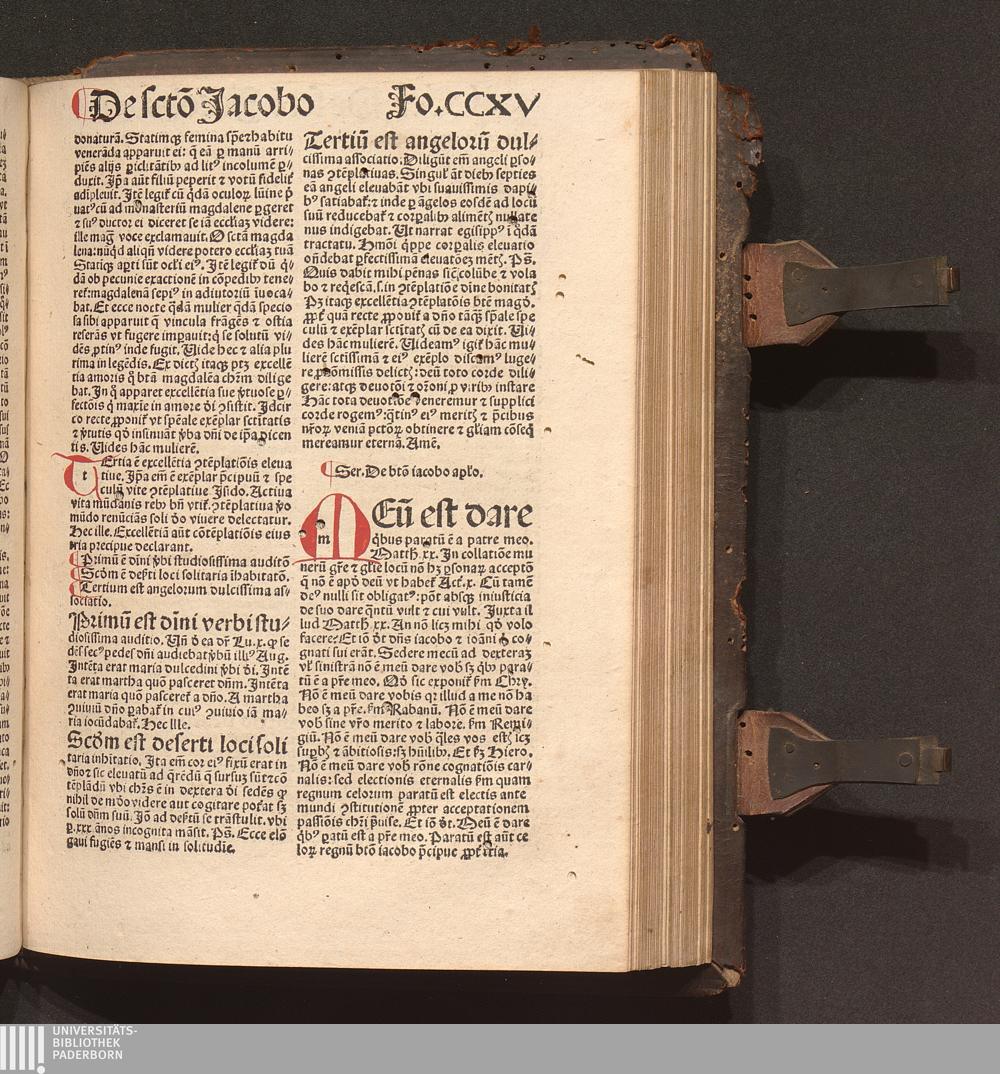 De sctō Jacobo Fo.CCXV
donaturā. Statimqꝫ femina spērhabitu
venerāda apparuit ei: q̄ eā ꝑ manū arri-
piēs alijs ꝑiclitātibꝰ ad litꝰ incolumē ꝑ-
duxit. Ip̄a aūt filiū peperit ⁊ votū fidelit̄
adipleuit. Itē legit̄ cū q̄dā oculoꝝ lūine p̄
uatꝰ cū ad monasteriū magdalene ꝑgeret
⁊ suꝰ ductor ei diceret se iā eccl̄iaꝫ videre:
ille maḡ voce exclamauit. O sctā magda
lena: nūqd aliqn̄ videre potero eccl̄iaꝫ tuā
Statiqꝫ aꝑti sūt ocl̄i eiꝰ. Itē legit̄ dū q̄-
dā ob pecunie exactionē in cōpedibꝰ tene-
ret̄: magdalenā sepiꝰ in adiutoriū iuoca-
bat. Et ecce nocte q̄dā mulier q̄dā specio
sa sibi apparuit q̄ vincula frāgēs ⁊ ostia
reserās vt fugere imꝑauit: q̄ se solutū vi-
dēs ꝓtinꝰ inde fugit. Vide hec ⁊ alia plu
rima in legēdis. Ex dictꝭ itaqꝫ ptꝫ excellē
tia amoris q̄ btā magdalēa chr̄m dilige
bat. In q̄ apparet excellētia sue v̄tuose ꝑ-
fectōis q̄ maxīe in amore dei ꝯsistit. Idcir
co recte ꝓponit̄ vt spēale exēplar sctītatis
⁊ v̄tutis qd̄ insinuāt v̄ba dn̄i de ip̄a dicen
tis. Vides hāc mulierē.
Tertia ē excellētia ꝯtēplatiōis eleua
tiue. Ip̄a em̄ ē exēplar p̄cipuū ⁊ spe
culū vite ꝯtēplatiue Isido. Actiua
vita mūdanis rebꝰ bn̄ vtit̄. ꝯtēplatiua v̄o
mūdo renūciās soli deo viuere delectatur.
Hec ille. Excellētiā aūt cōtēplatiōis eius
tria precipue declarant.
Primū ē dn̄i v̄bi studiosissima auditō
Scd̄m ē deẜti loci solitaria ihabitatō.
Tertium est angelorum dulcissima as-
sociatio.
Primū est dn̄i verbi stu-
diosissima auditio. Vn̄ de ea dr̄ Lu.x. q̄ se
dēs secꝰ pedes dn̄i audiebat v̄bū illiꝰ Aug.
Intēta erat maria dulcedini v̄bi dei. Intē
ta erat martha quō pasceret dn̄m. Intēta
erat maria quō pasceret̄ a dn̄o. A martha
ꝯuiuiū dn̄o ꝑabat̄ in cuiꝰ ꝯuiuio iā ma-
ria iocūdabat̄. Hec Ille.
Scdm est deserti loci soli
taria inhitatio. Ita em̄ cor eiꝰ fixū erat in
dn̄o ⁊ sic eleuatū ad q̄rēdū q̄ sursuꝫ sūt ⁊ cō
tēplādū vbi chr̄s ē in dextera dei sedēs q̄
nihil de mūdo videre aut cogitare pot̄at sꝫ
solū dn̄m suū. Iō ad deẜtū se trāstulit. vbi
ꝑ.xxx annos incognita māsit. Ps̄. Ecce elō
gaui fugiēs ⁊ mansi in solitudīe.
Tertiū est angeloꝝ dul-
cissima associatio. Diligūt em̄ angeli ꝑso-
nas ꝯtēplatiuas. Singul̄ aūt diebꝰ septies
eā angeli eleuabāt vbi suauissimis dapi-
bꝰ satiabat̄: ⁊ inde ꝑ āgelos eosdē ad locū
suū reducebat̄ ⁊ corꝑalibꝰ alimētꝭ nullate
nus indigebat. Ut narrat egisippꝰ i q̄dā
tractatu. Hm̄oi q̄ppe corꝑalis eleuatio
on̄debat ꝑfectissimā eleuatōeꝫ mētꝭ. Ps̄.
Quis dabit mihi pēnas sic̄ colūbe ⁊ vola
bo ⁊ reqescā.s. in ꝯtēplatiōe diuine bonitatꝭ
Pꝫ itaqꝫ excellētia ꝯtēplatōis bt̄e magd̄.
ꝓpt̄ quā recte ꝓponit̄ a dn̄o tāqꝫ sp̄ale spe
culū ⁊ exēplar sctītatꝭ cū de ea dixit. Vi-
des hāc mulierē. Videamꝰ igit̄ hāc mu-
lierē sctissimā ⁊ eiꝰ exēplo discamꝰ luge-
re ꝓ cōmissis delictꝭ: deū toto corde dili-
gere: atqꝫ deuotōi ⁊ or̄oni ꝓ viribꝰ instare
Hāc tota deuotōe veneremur ⁊ supplici
corde rogemꝰ: q̄tinꝰ eiꝰ meritꝭ ⁊ p̄cibus
nr̄oꝝ veniā pctōꝝ obtinere ⁊ gl̄iam cōseq̄
mereamur eternā. Amē.
Ser. De btō iacobo apl̄o.
MEū est dare
q̄bus paratū ē a patre meo.
Matth. xx. In collatiōe mu
nerū gr̄e ⁊ gl̄ie locū nō hꝫ ꝑsonaꝝ acceptō
q̄ nō ē apd̄ deū vt habet̄ Act̄.x. Cū tamē
deꝰ nulli sit obligatꝰ: pōt absqꝫ iniusticia
de suo dare q̄ntū vult ⁊ cui vult. Juxta il
lud Matth xx. An nō licꝫ mihi qd̄ volo
facere? Et iō dt̄ dn̄s iacobo ⁊ ioāni q̄ co-
gnati sui erāt. Sedere mecū ad dexteraꝫ
vl̄ sinistrā nō ē meū dare vob̄ sꝫ q̄bꝰ para-
tū ē a pr̄e meo. Qd̄ sic exponit̄ ẜm Chrẏ.
Nō ē meū dare vobis qꝛ illud a me nō ha
beo sꝫ a pr̄e. ẜm Rabanū. Nō ē meū dare
vob̄ sine vr̄o merito ⁊ labore. ẜm Remi-
giū. Nō ē meū dare vob̄ q̄les vos estꝭ lcꝫ
suꝑbꝭ ⁊ ābitiosis: sꝫ hūilibꝰ. Et ẜꝫ Hiero.
Nō ē meū dare vob̄ rōne cognatiōis car-
nalis: sed electionis eternalis ẜm quam
regnum celorum paratū est electis ante
mundi ꝯstitutionē ꝓpter acceptationem
passiōis chr̄i p̄uise. Et iō dt̄. Meū ē dare
q̄bꝰ ꝑatū est a pr̄e meo. Paratū est aūt ce
loꝝ regnū btō iacobo p̄cipue ꝓpt̄ tria.
UNIVERSITÄTS-
BIBLIOTHEK
PADERBORN